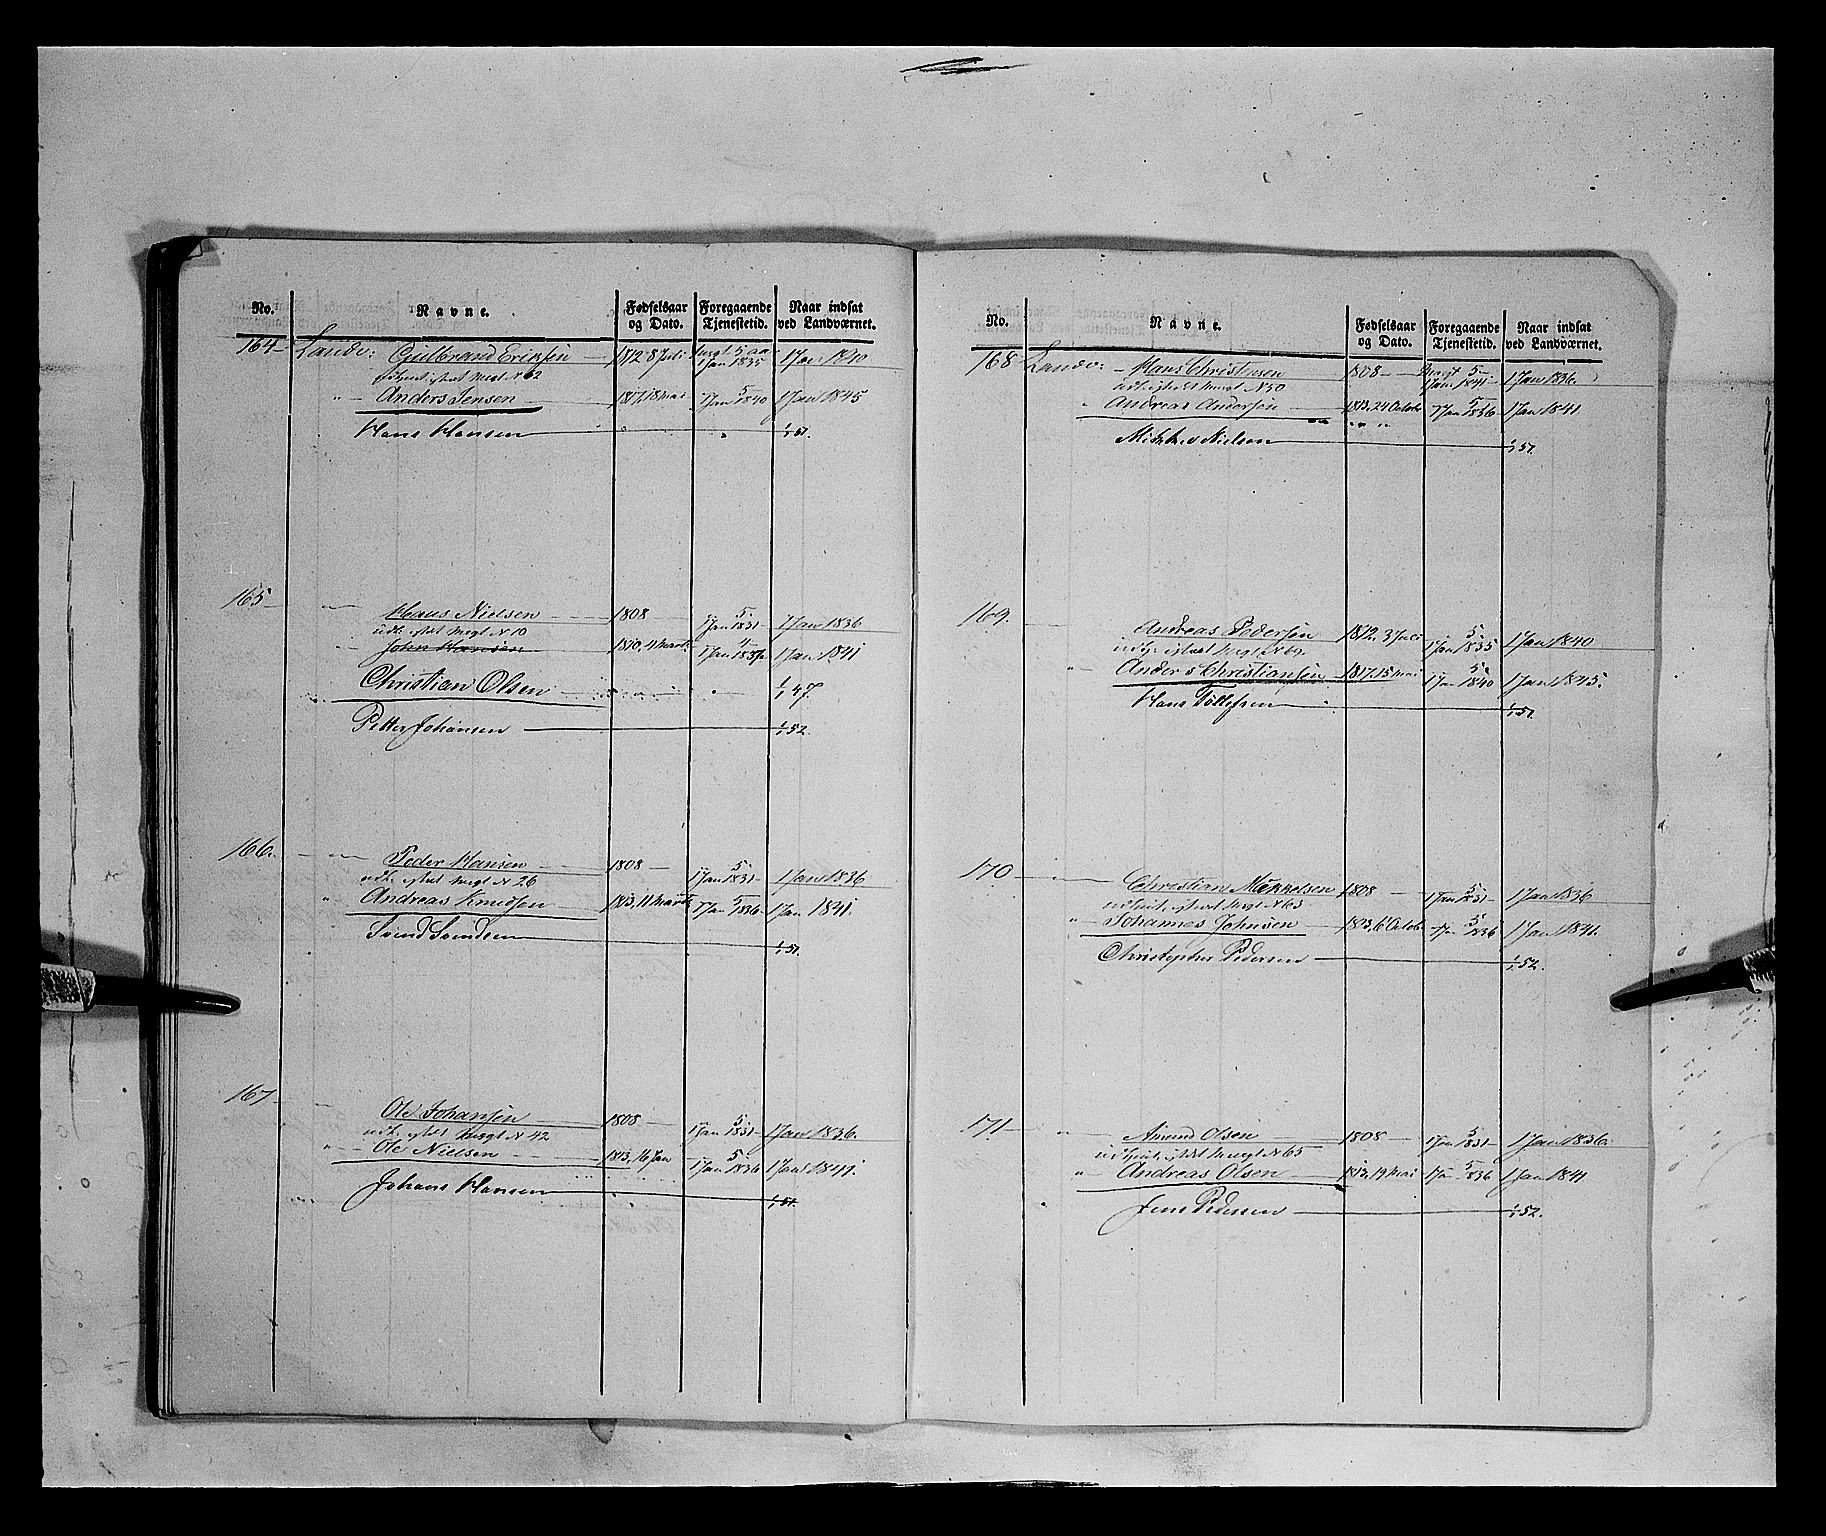 No. Navne. Fødselsaar og Dato. Foregaaende Tjenestetid. Naar indsat ved Landværnet.
164 Landv: Gulbrand Eriksen 1812 8 Juli 5 1 Jan 1835 1 Jan 1840
N 62
" Anders Jensen 1817, 18 Mai 5 1 Jan 1840 1 Jan 1845
Hans Hansen 1/1 51.
165 Hans Nielsen 1808 5 1 Jan 1831 1 Jan 1836
N 10
John Hansen 1810, 4 Marts 1 Jan 1841
Christian Olsen 1/1 47.
Petter Johansen 1/1 52.
166. Peder Hansen 1808 5 1 Jan 1831 1 Jan 1836
N 26
" Andreas Knudsen 1813, 11 Marts 5 1 Jan 1836 1 Jan 1841.
Svend Svendsen 1/1 51.
167 Ole Johansen 1808 5 1 Jan 1831 1 Jan 1836.
N 42
" Ole Nielsen 1813, 16 Jan 5 1 Jan 1836 1 Jan 1841.
Johans Hansen 1/1 51.
No. Navne. Fødselsaar og Dato. Foregaaende Tjenestetid. Naar indsat ved Landværnet.
168 Landv: Hans Christensen 1808 5 1 Jan 1836.
N 50
" Andreas Andersen 1813, 24 Octobr 5 1 Jan 1836 1 Jan 1841
Nielsen 1/1 51.
169. Andreas Pedersen 1812, 3 Juli 5 1 Jan 1835 1 Jan 1840
N 69.
" Anders Christiansen 1817, 15 Mai 5 1 Jan 1840 1 Jan 1845.
Hans Tollefsen 1/1 51.
170 Christian Mikkelsen 1808 5 1 Jan 1831 1 Jan 1836
N 63
" Johannes Johnsen 6 Octob 5 1 Jan 1836 1 Jan 1841.
Christopher Pedersen 1/1 52.
171 Amund Olsen 1808 5 1 Jan 1831 1 Jan 1836.
N 65
" Andreas Olsen 1813, 19 Mai 5 1 Jan 1836 1 Jan 1841
Jens Pedersen 1/1 52.